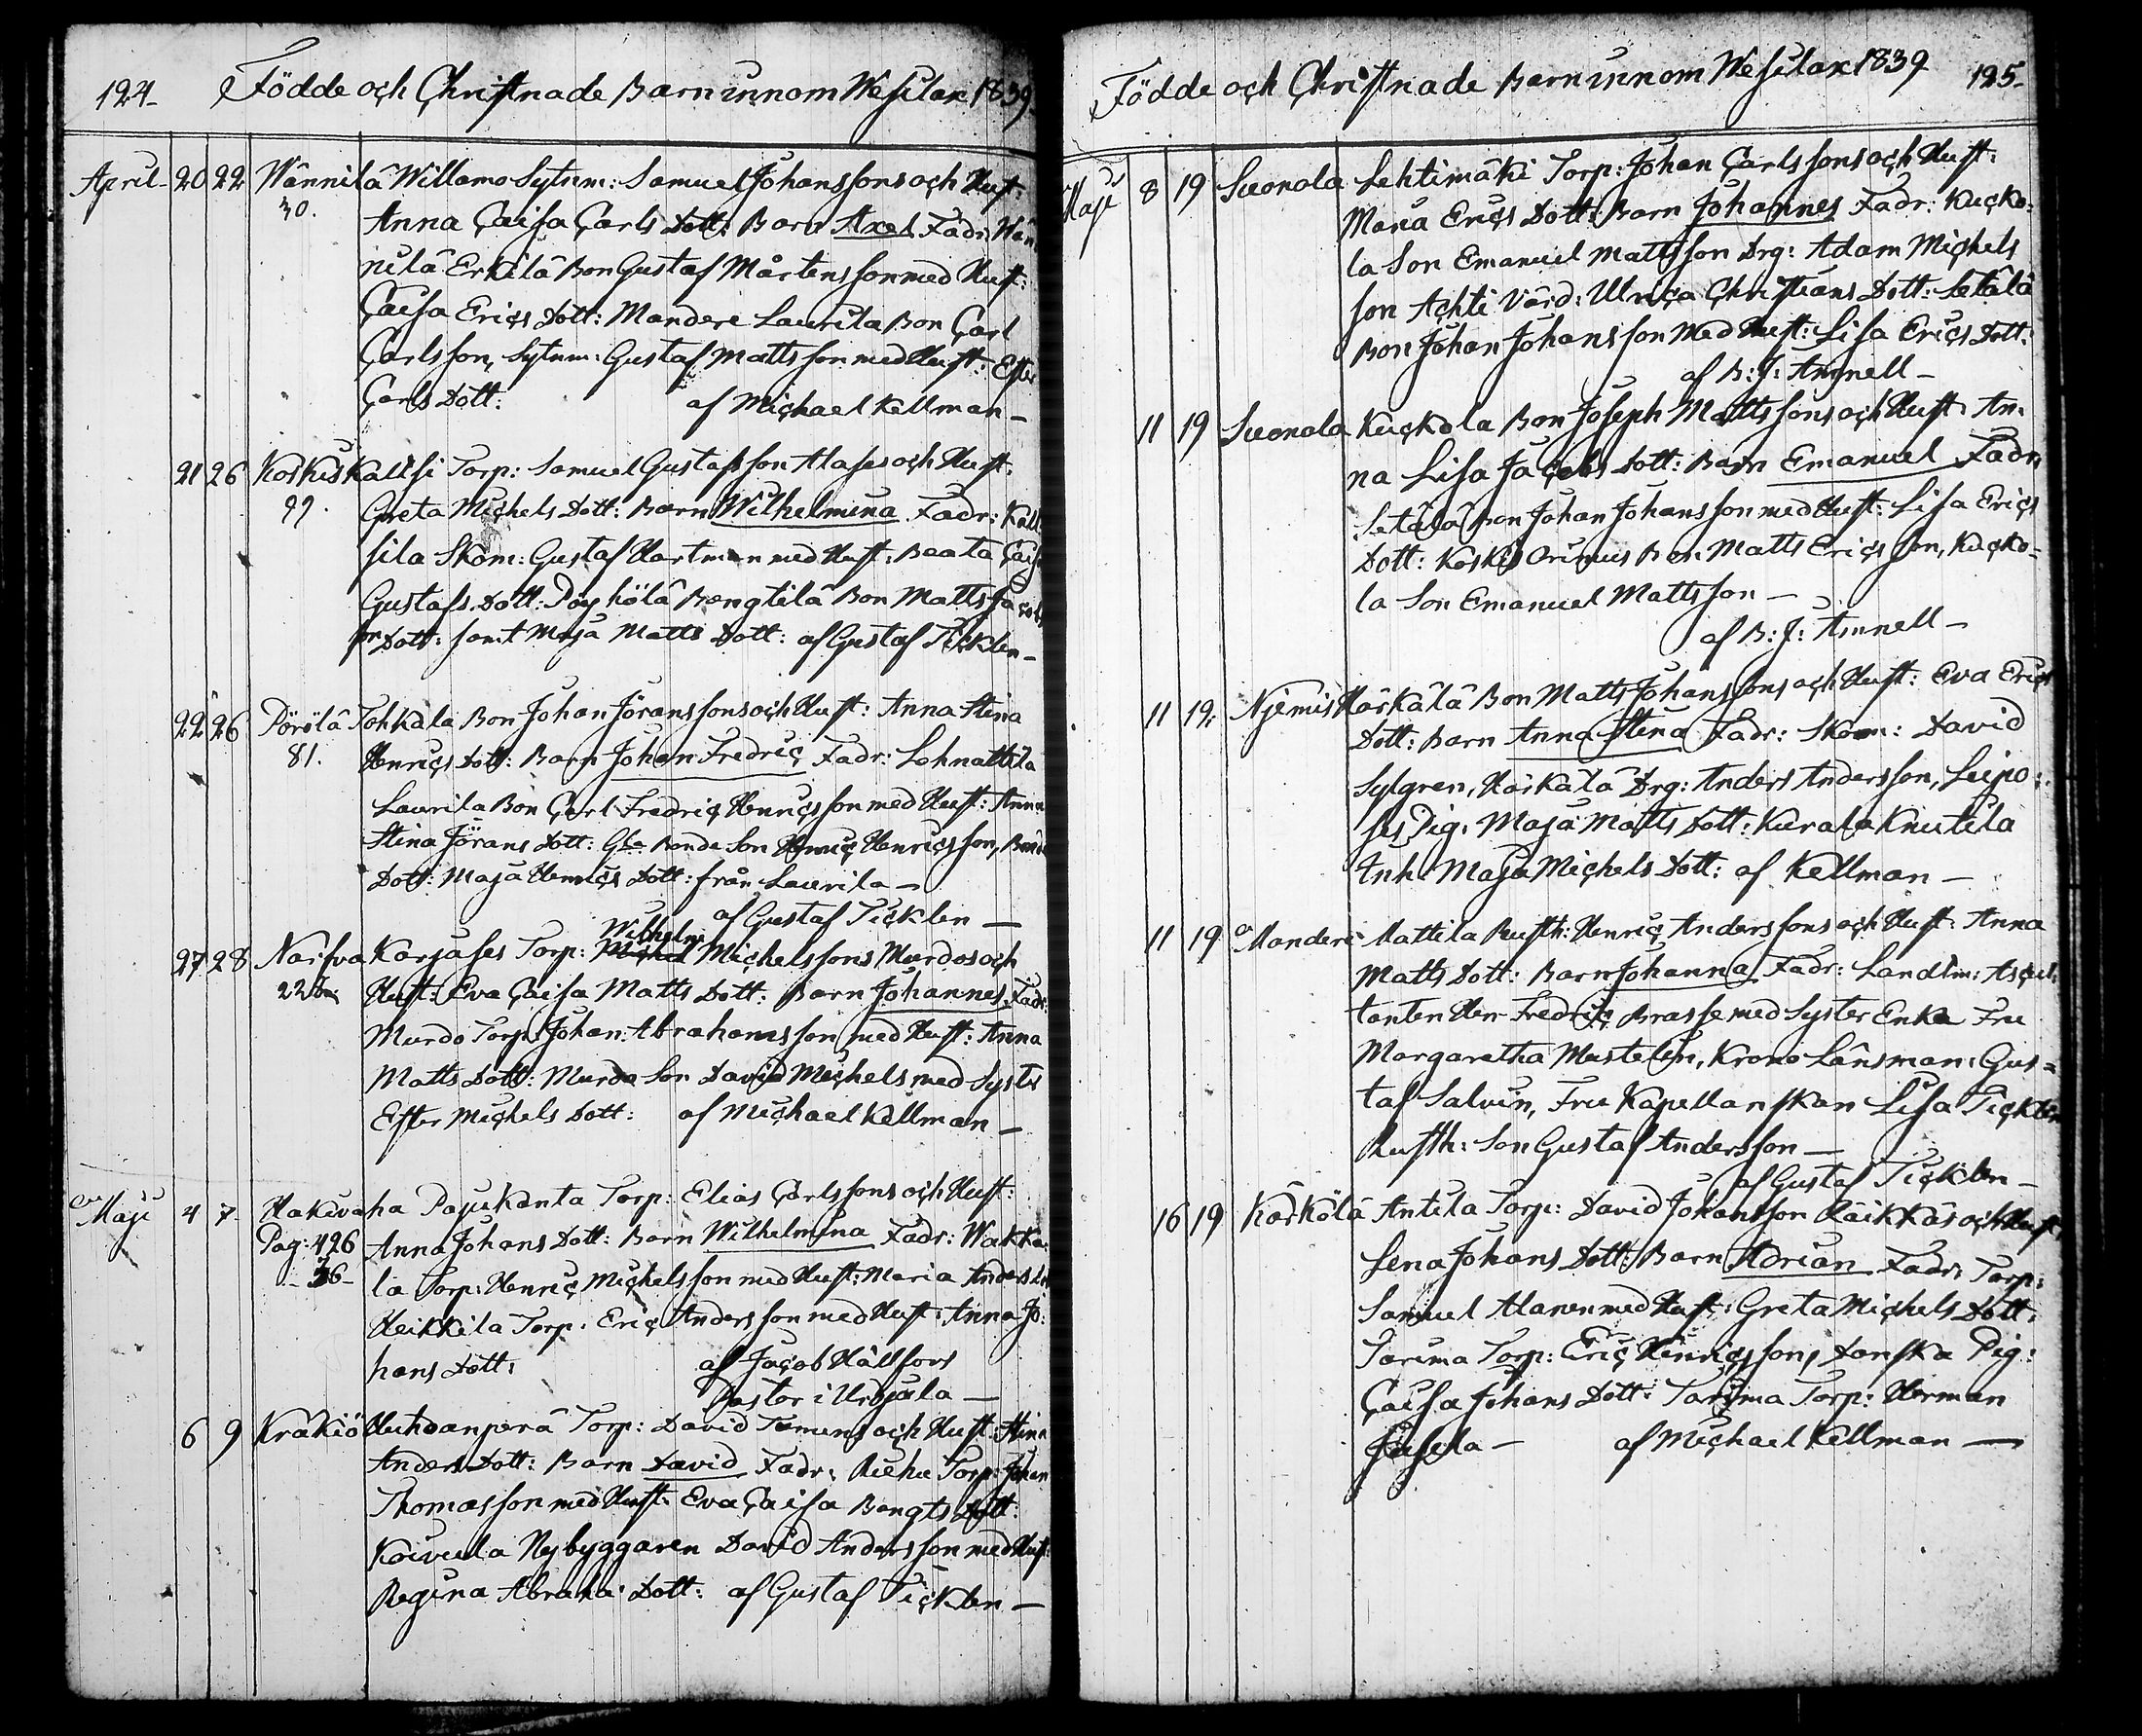 124. Födde och Christnade Barn innom Wesilax 1839
April 20 22 Wännilä Willamo Sytnm: Samuel Johanssons och Hust:
30. Anna Caisa Carls Dott: Barn Axel Fadr: Wän
nilä Erkilä Bon Gustaf Mårtensson med Hust:
Caisa Erics Dott: Mandere Laurila Bon Carl
Carlsson, Sytnm: Gustaf Mattsson med Hust: Ester
Carls Dott: af Michael Kellman
21 26 Koskis Kaltsi Torp: Samuel Gustafsson Alases och Hust:
99. Greta Michels Dott: Barn Wilhelmina Fadr: Kalt
sila Skom: Gustaf Hartman med Hust: Beata Cais
Gustafs Dott: Pöyhölä Bengtilä Bon Matts Jacob
son Dott: samt Maja Matts Dott: af Gustaf Ticklen
22 26 Pörölä Tohkala Bon Johan Jöranssons och Hust: Anna Stina
81. Henrics Dott: Barn Johan Fredric Fadr: Lohnattila
Laurila Bon Carl Fredric Henricsson med Hust: Anna
Stina Jörans Dott: Gla Bonde Son Henric Henricsson, Bonde
Dott: Maja Henrics Dott: från Laurila
af Gustaf Ticklen
Wilhelm
27 28 Narfva Karjases Torp: Michel Michelssons Murdos och
22 Hust: Eva Caisa Matts Dott: Barn Johannes Fadr:
Murdo Torp: Johan Abrahamsson med Hust: Anna
Matts Dott: Murdo Son David Michels med Syster
Ester Michels Dott: af Michael Kellman
Maji 4 7 Hakivaha Pajukanta Torp: Elias Carlssons och Hust:
Pag: 426 Anna Johans Dott: Barn Wilhelmina Fadr: Wakka
36 la Torp: Henric Michelsson med Hust: Maria Anders Dt
Heikkila Torp: Eric Andersson med Hust: Anna Jo:
hans Dott: af Jacob Hällfors
Pastor i Urdjala
6 9 Kräkiö Huhdanperä Torp: David Tomens och Hust: Stina
Anders Dott: Barn David Fadr: Riehu Torp: Johan
Thomasson med Hust: Eva Caisa Bengts Dott:
Koivula Nybyggaren David Andersson med Hust:
Regina Abraha: Dott: af Gustaf Ticklen
Födde och Christnade Barn innom Wesilax 1839 125.
Maji 8 19 Suonola Lehtimäki Torp: Johan Carlssons och Hust:
Maria Erics Dott: Barn Johannes Fadr: Kucko:
la Son Emanuel Mattsson Drg: Adam Michels
son Achti Värd: Ulrica Christians Dott: Setälä
Bon Johan Johansson med Hust: Lisa Erics Dott:
af B: J: Amnell
11 19 Suonola Kuckola Bon Joseph Mattssons och Hust: An:
na Lisa Jacobs Dott: Barn Emanuel Fadr:
Setälä Bon Johan Johansson med Hust: Lisa Erics
Dott: Koskis Orimus Bon Matts Ericsson, Kucko-
la Son Emanuel Mattsson
af B: J: Amnell
11 19 Njemis Härkälä Bon Matts Johanssons och Hust: Eva Erics
Dott: Barn Anna Stina Fadr: Skom: David
Sylgren, Härkälä Drg: Anders Andersson, Leipo:
ses Pig: Maja Matts Dott: Kurala Knutila
Inh: Maja Michels Dott: af Kellman
11 19 Mandere Mattila Rusth: Henric Anderssons och Hust: Anna
Matts Dott: Barn Johanna Fadr: Landtm: Ascul:
tanten Herr Fredric Brasse med Syster Enka Fru
Margaretha Mustelin, Krono Länsman: Gus-
taf Salvin, Fru Kapellanskan Lisa Ticklen
Rusth: Son Gustaf Andersson
af Gustaf Ticklen
16 19 Karkölä Antila Torp: David Johansson Räikkäs och Hust:
Lena Johans Dott: Barn Adrian Fadr: Torp:
Samuel Alanen med Hust: Greta Michels Dott:
Tarima Torp: Eric Henricsson, Danska Pig:
Caisa Johans Dott: Tarima Torp: Herman
Jusela af Michael Kellman